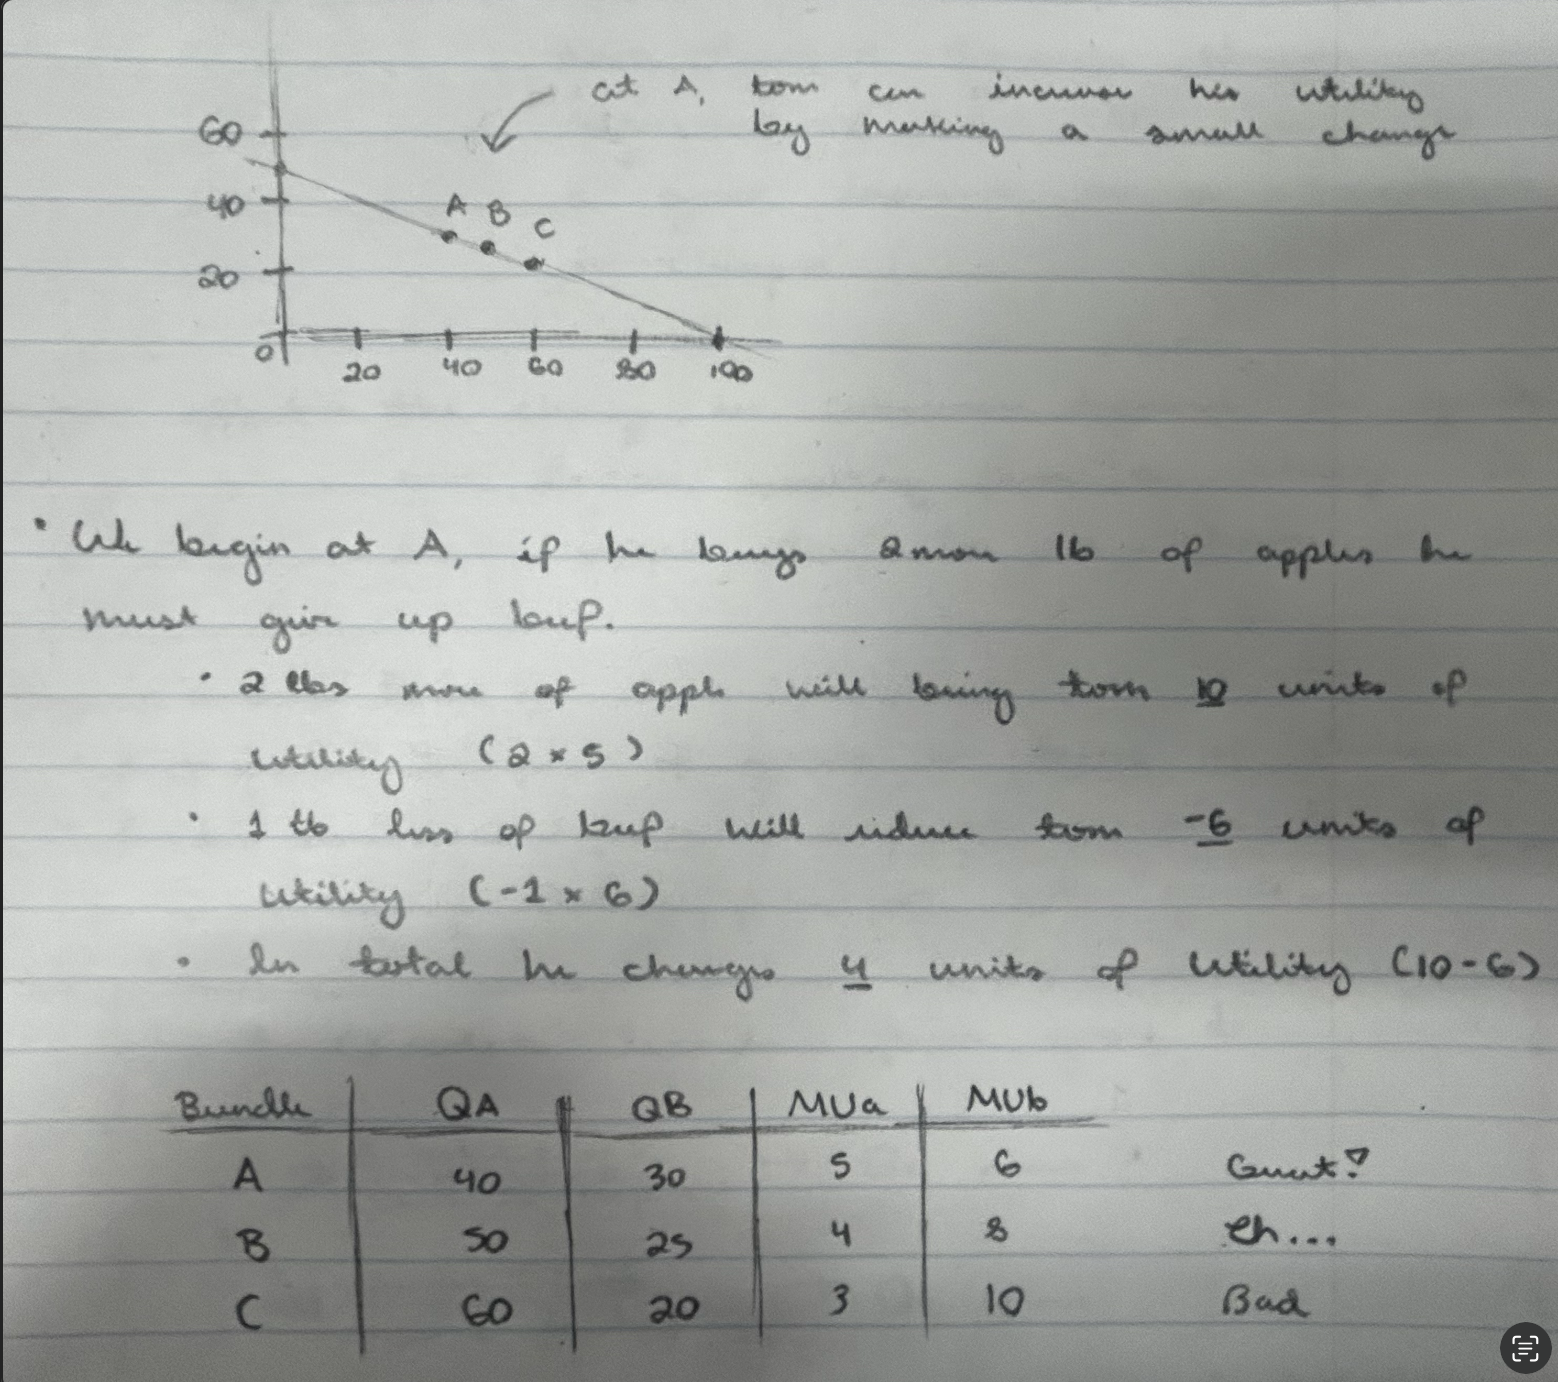 at A, tom can increase his utility
by making a small change
60
40
20
0
A B C
20 40 60 80 100
• We begin at A, if he buys 2 more lb of apples he
must give up beef.
• 2 lbs more of apple will bring tom 10 units of
utility (2 × 5)
• 1 lb less of beef will reduce tom -6 units of
utility (-1 × 6)
• In total he changes 4 units of utility (10-6)
Bundle QA QB MUa MUb
A 40 30 5 6 Great!
B 50 25 4 8 eh...
C 60 20 3 10 Bad